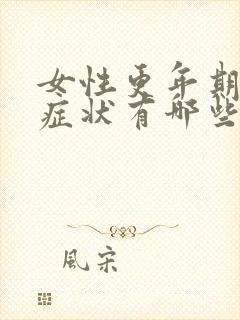 女性更年期
症状有哪些
風宋